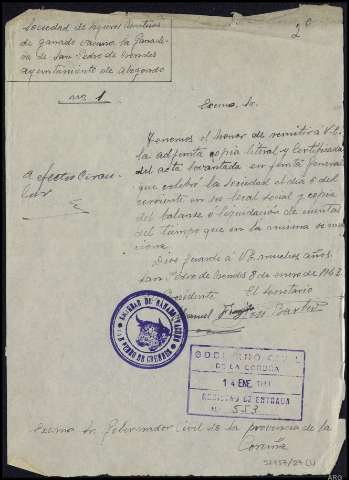 Sociedad de Seguros Mutuos
de ganado vacuno la Ganade-
ra de San Pedro de Crendes
ayuntamiento de Abegondo
2º
nº 1
Excmo. Sr.
Tenemos el honor de remitir a V.E.
la adjunta copia literal y certificada
del acta levantada en junta general
que celebró la Sociedad el día 6 del
corriente en su local social y copia
del balance o liquidación de cuentas
del tiempo que en la misma se men-
ciona.
Dios guarde a V.E. muchos años
San Pedro de Crendes 8 de enero de
Presidente El Secretario
Manuel José
SAN PEDRO DE CRENDES
GOBIERNO CIVIL
DE LA CORUÑA
14 ENE.
REGISTRO DE ENTRADA
N.º 553
Excmo Sr Gobernador Civil de la provincia de la
Coruña
ARG